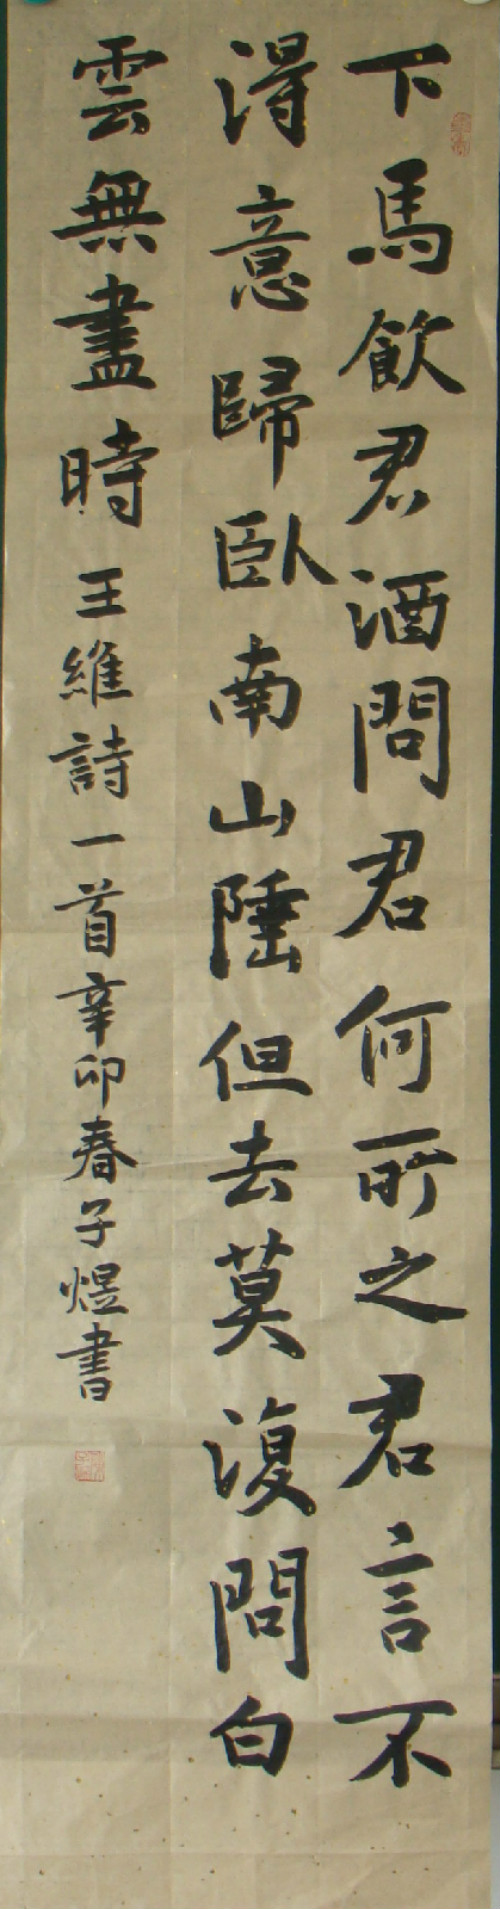 下馬飲君酒問君何所之君言不
得意歸臥南山陲但去莫復問白
雲無盡時王維詩一首辛卯春子煜書